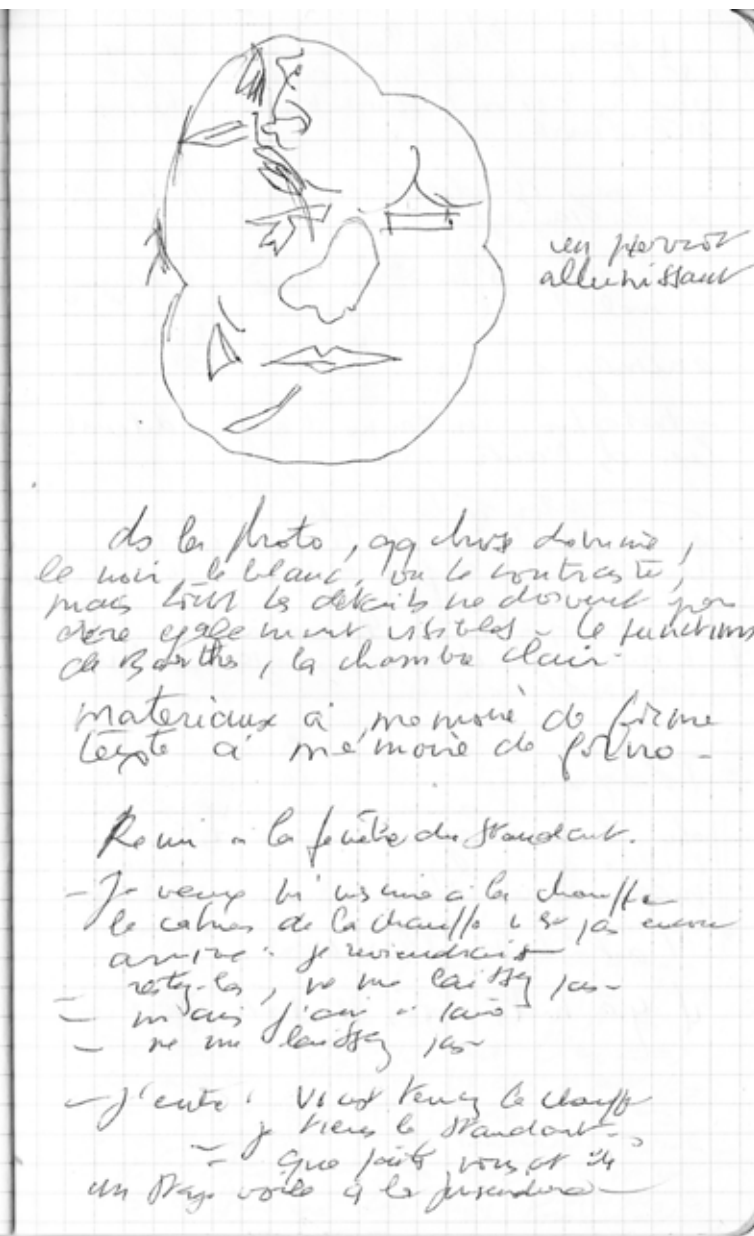 un pierrot
alunissant
ds la photo, qq chose domine,
le noir, le blanc, ou le contraste,
mais tous les détails ne doivent pas
être également visibles - le punctum
de Barthes, la chambre clair -
materiaux à mémoire de forme
texte à mémoire de forme -
Remi à la fenêtre du standard.
- Je veux la chauffe
le cahier de la chauffe pas encore
arrivé - je reviendrai
restez-là, ne me laissez pas -
- mais j'ai à faire
- ne me laissez pas -
- j'entre : vous tenez la chauffe
je tiens le standard -
- que faites vous
un stage voile à la